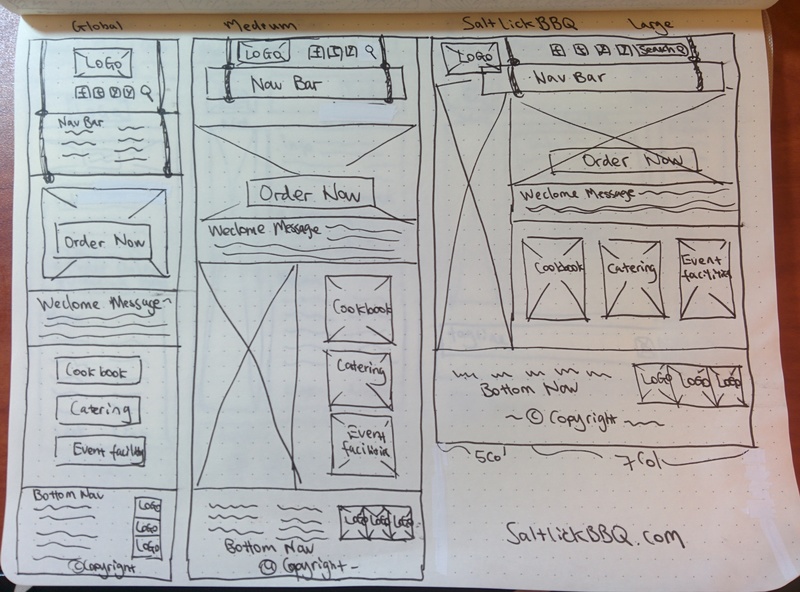 Global
LOGO
f t y y
Nav Bar
Order Now
Weclome Message
Cookbook
Catering
Event facility
Bottom Nav
LOGO
LOGO
LOGO
© Copyright
Medium
LOGO
Nav Bar
Order Now
Weclome Message
Cookbook
Catering
Event
facilities
LOGO LOGO LOGO
Bottom Nav
© Copyright
SaltLickBBQ Large
LOGO
Search
Nav Bar
Order Now
Weclome Message
Cookbook
Catering
Event
facilities
LOGO LOGO LOGO
Bottom Now
© Copyright
5 Col 7 Col
SaltLickBBQ.com